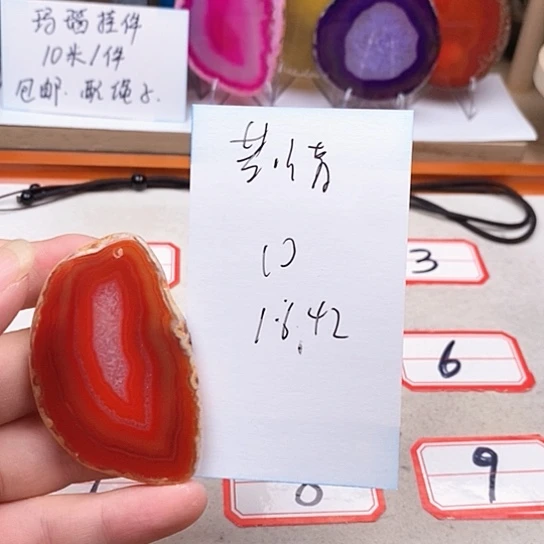 玛瑙挂件
10米1件
包邮.配绳子.
10
1.6.42
3
6
9
0